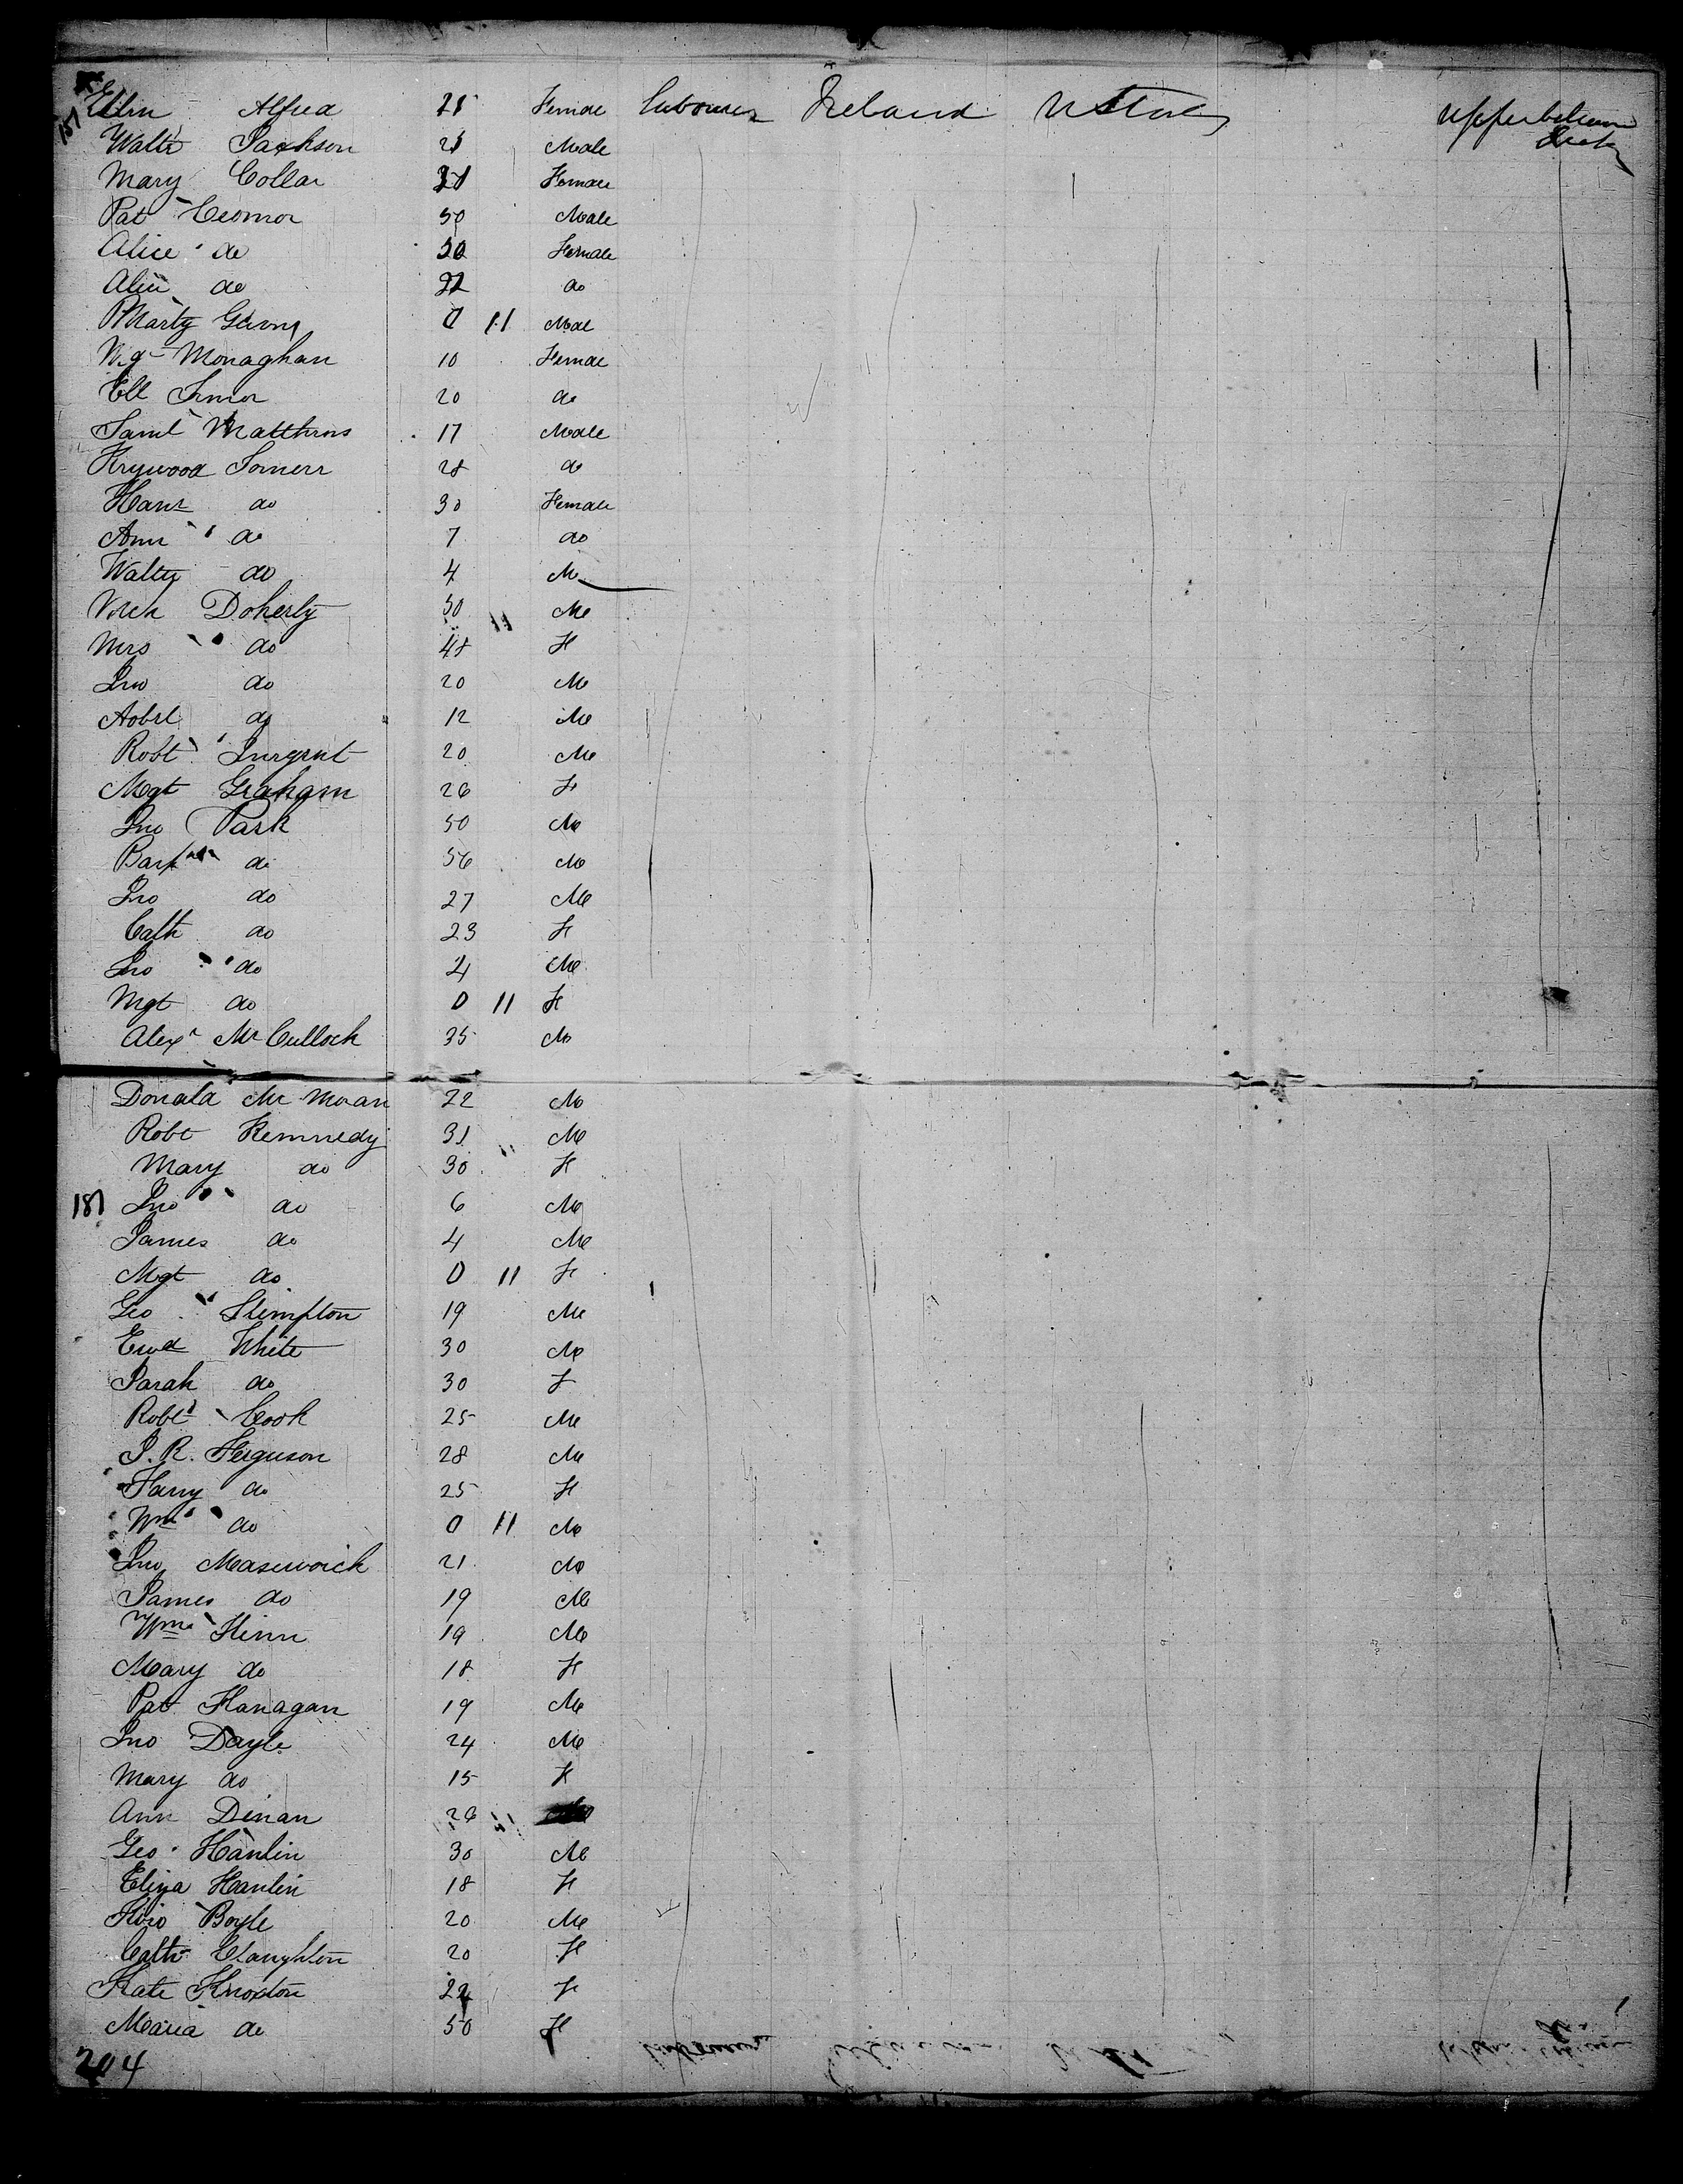 Ellen Alfred 25 Female Labourer Ireland U States Upper between Decks
157
Walter Jackson 25 Male
Mary Collar 21 Female
Pat Connor 50 Male
Alice do 50 Female
Alice do 22 do
Marty 0 11 Male
Mgt Monaghan 10 Female
Ell 20 do
Saml Matthews 17 Male
Somers 28 do
Hanr do 30 Female
Ann do 7 do
Walter do 4 M
Doherty 50 M
Mrs do 48 F
Jno do 20 M
Robt do 12 M
Robt 20 M
Mgt Graham 26 F
Jno Park 50 M
do 56 M
Jno do 27 M
Cath do 23 F
Jno do 4 M
Mgt do 0 11 F
Alexr McCulloch 35 M
Donald Mc 22 M
Robt Kennedy 31 M
Mary do 30 F
187 Jno do 6 M
James do 4 M
Mgt do 0 11 F
Geo Stimpton 19 M
Ewd White 30 M
Sarah do 30 F
Robt Cook 25 M
J. R. Ferguson 28 M
Fanny do 25 F
Wm do 0 11 M
Jno 21 M
James do 19 M
Wm Flinn 19 M
Mary do 18 F
Pat Flanagan 19 M
Jno Dayle 24 M
Mary do 15 F
Ann Dinan 26
Geo Hanlin 30 M
Eliza Hanlin 18 F
Boyle 20 M
Cath Claughton 20 F
Kate Knoxton 22 F
Maria do 50 F
204